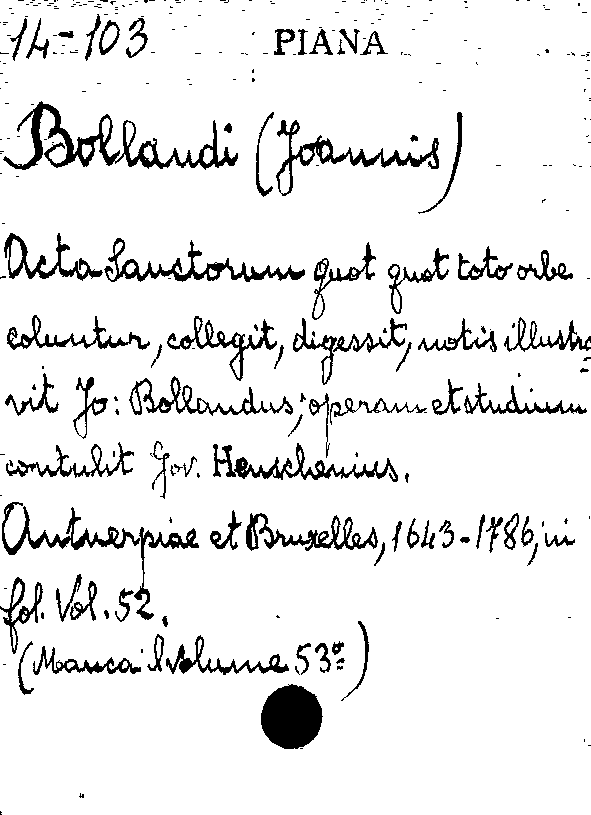 14-103 PIANA
Bollandi (Joannis)
Acta Sanctorum quot quot toto orbe
coluntur, collegit, digessit, notis illustra=
vit Jo: Bollandus; operam et studium
contulit Gov. Henschenius.
Antuerpiae et Bruxelles, 1643-1786, in
fol. Vol. 52.
(Manca il volume 53º)